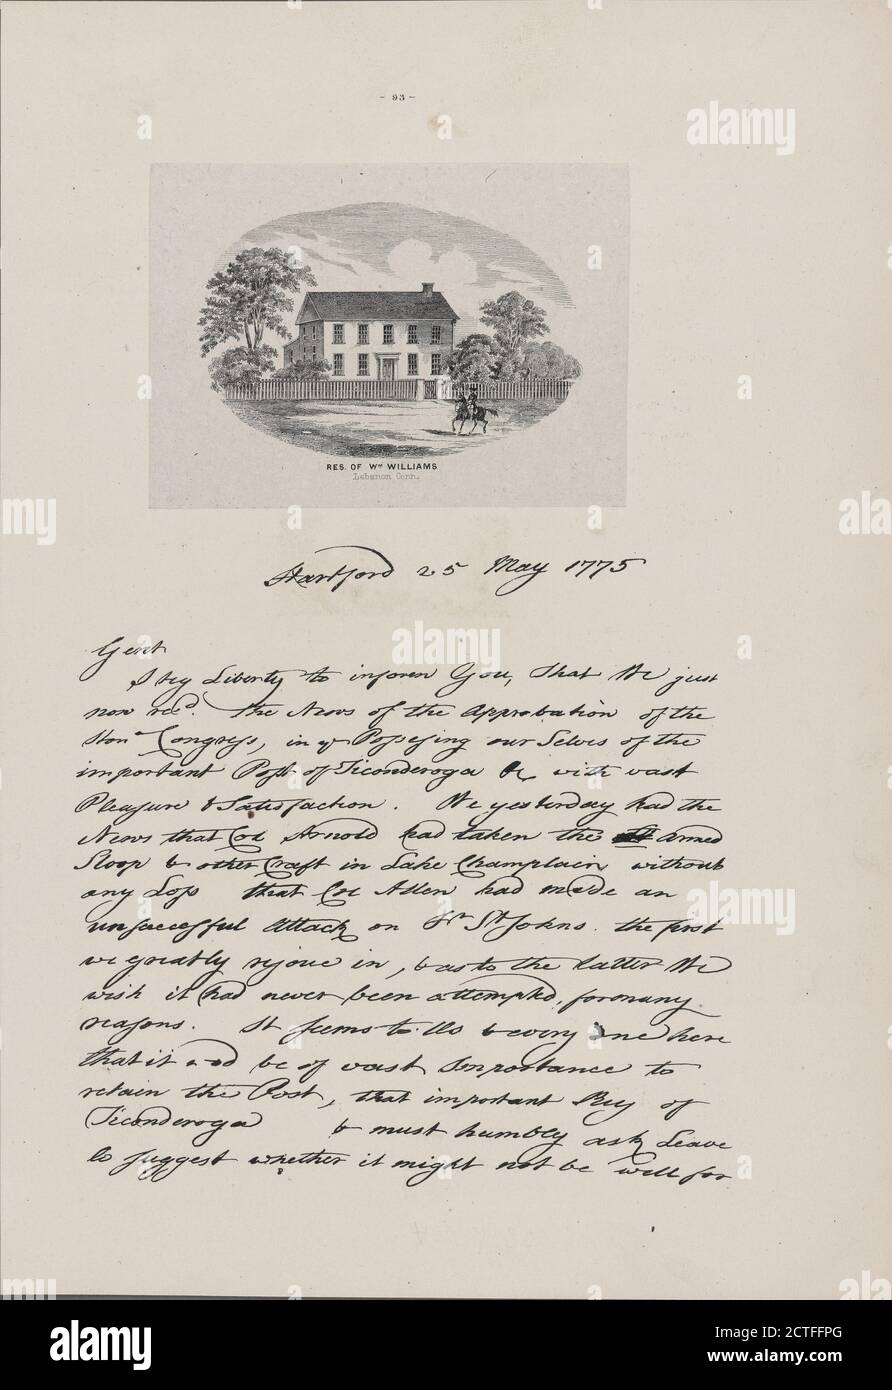 - 93 -
RES. OF Wm WILLIAMS
Lebanon Conn.
Hartford 25 May 1775
Gent
I beg Liberty to inform You, that We just
now recd. the News of the Approbation of the
Honl Congress, in ye Possessing our Selves of the
important Post of Ticonderoga &c with vast
Pleasure & Satisfaction. We yesterday had the
News that Col Arnold had taken the Armed
Sloop & other Craft in Lake Champlain without
any Loss that Col Allen had made an
unsuccessful Attack on St Johns. the first
we greatly rejoice in, & as to the latter We
wish it had never been attempted, for many
reasons. It seems to Us & every one here
that it wd be of vast Importance to
retain the Post, that important Key of
Ticonderoga & must humbly ask Leave
to suggest whether it might not be well for
alamy
Image ID: 2CTFFPG
www.alamy.com